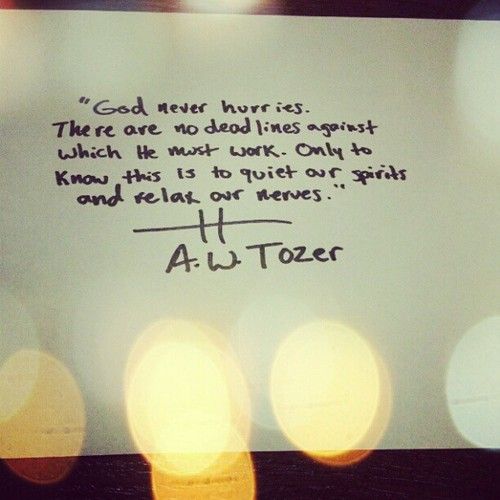 "God never hurries.
There are no deadlines against
which He must work. Only to
know this is to quiet our spirits
and relax our nerves."
A.W. Tozer